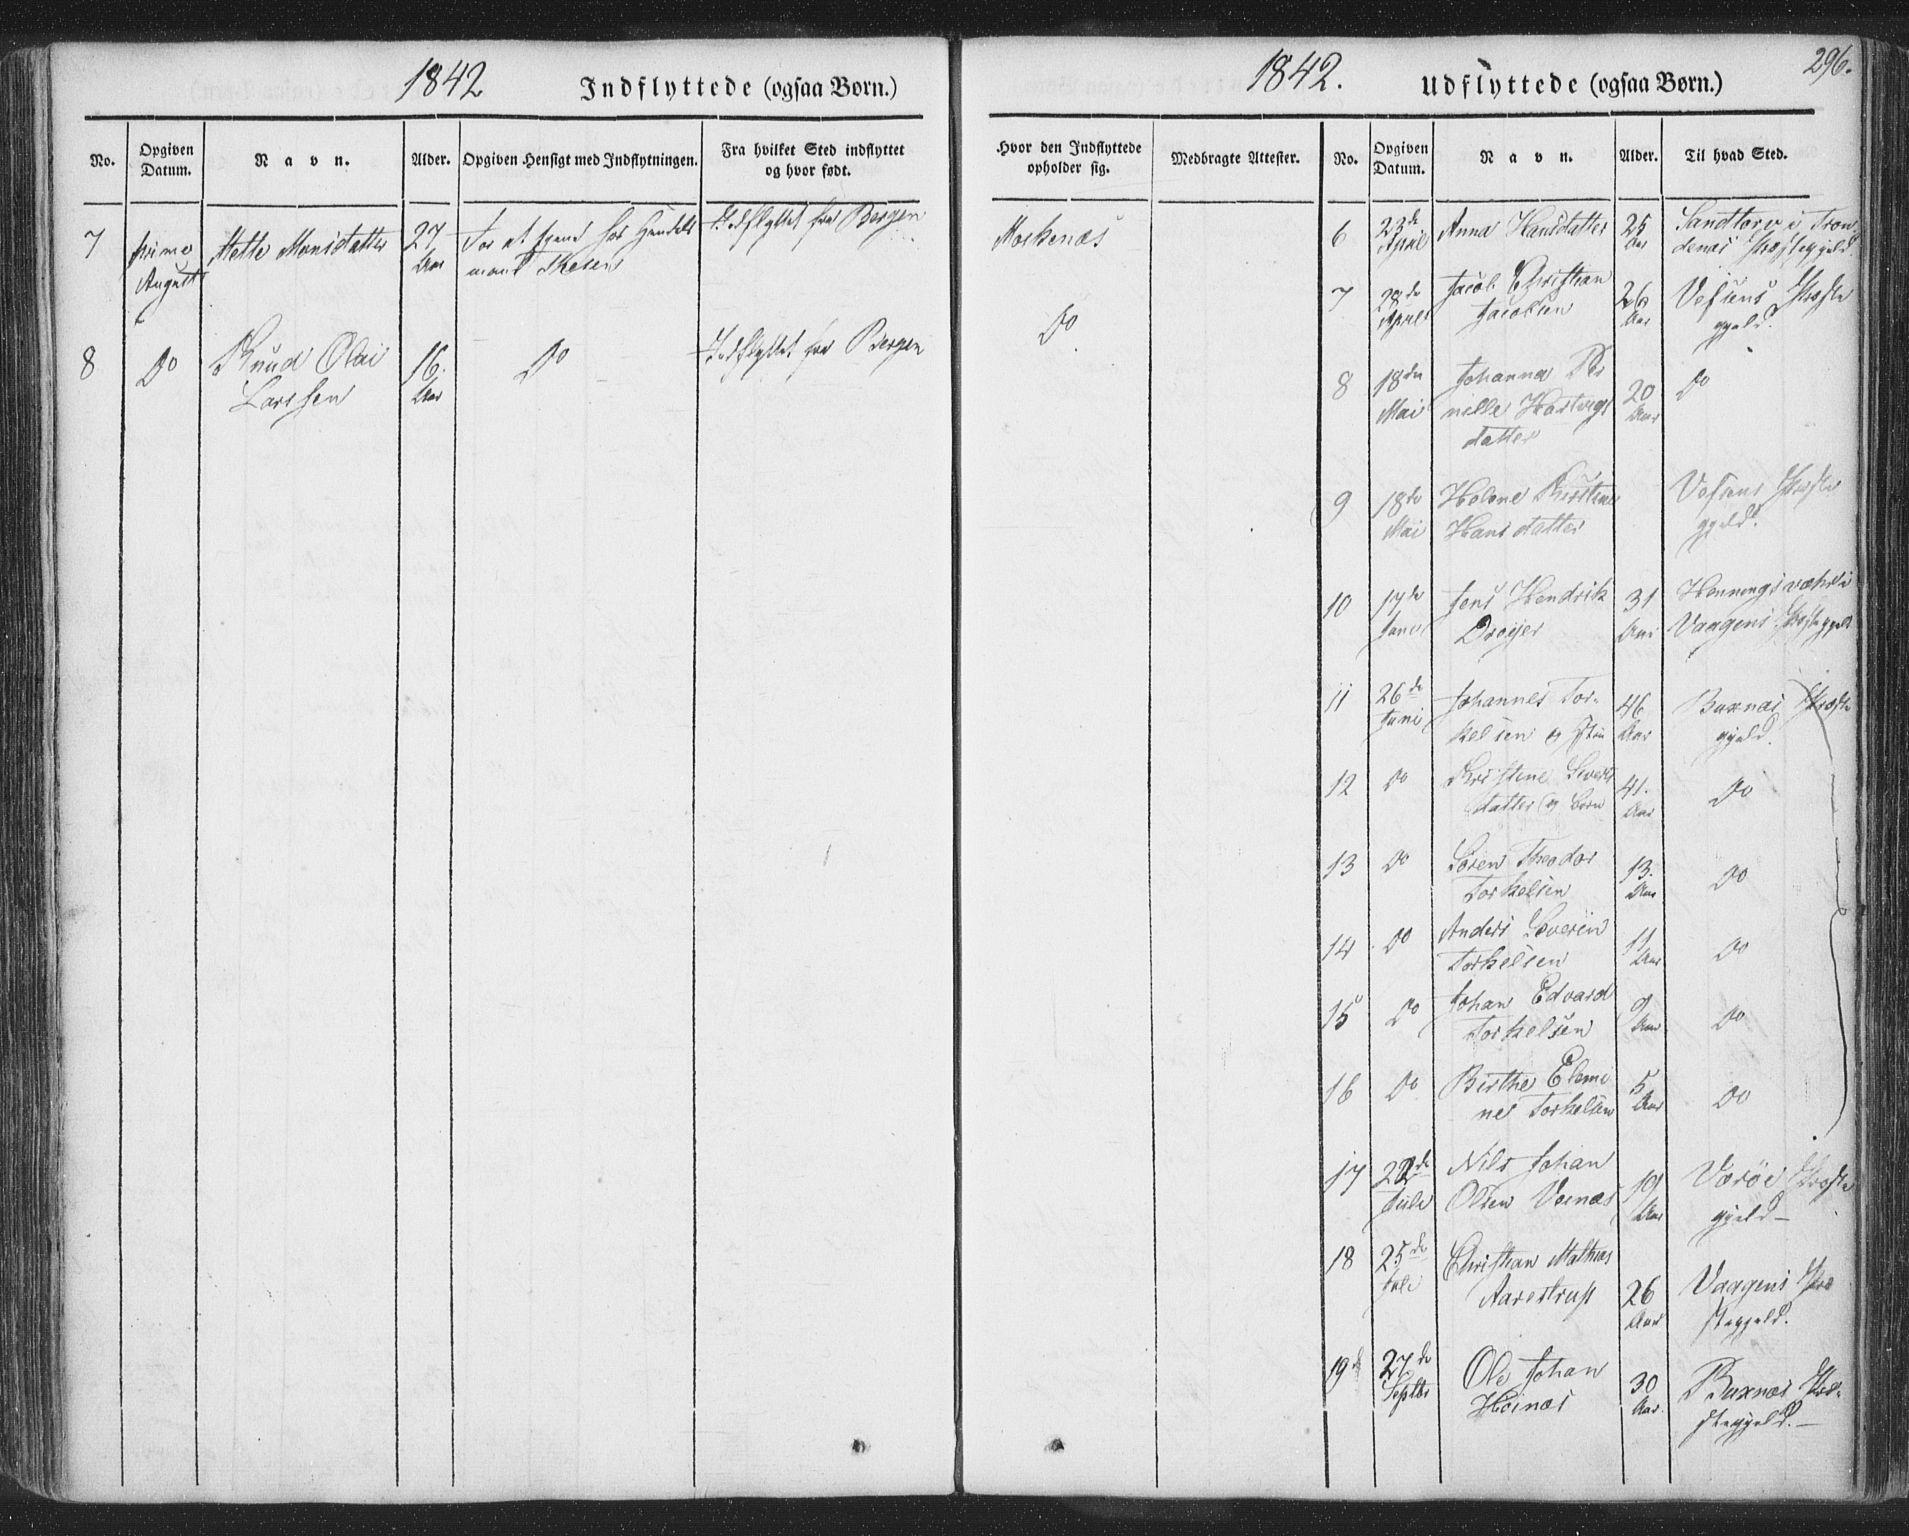 1842 Indflyttede (ogsaa Børn.)
No. Opgiven Datum. Navn. Alder. Opgiven Hensigt med Indflytningen. Fra hvilket Sted indflyttet og hvor født.
7 primo August Mette Monsdatter 27 Aar For at tjene hos Handels Indflyttet fra Bergen
mand
8 Do Knud Olai 16 Aar Do Indflyttet fra Bergen
Larssen
1842. Udflyttede (ogsaa Børn.) 296.
Hvor den Indflyttede opholder sig. Medbragte Attester. No. Opgiven Datum. Navn. Alder. Til hvad Sted.
Moskenæs
Do
6 23de April Anna Hansdatter 25 Aar Sandtorv i Tron
denæs Præstegjeld.
7 28de April Jacob Christian 26 Aar Vefsens Præste
Jacobsen gjeld.
8 18de Mai Johanna Per 20 Aar Do
nille Hartvigs
datter
9 18de Mai Helene Kirstine Vefsens Præste
Hansdatter gjeld.
10 17de Juni Jens Hendrik 31 Aar Henningsvæhr i
Dreyer Vaagens Præstegjeld
11 26de Juni Johannes Tor- 46 Aar Buxnæs Præste
kelsen og gjeld.
12 Do Kristine Siverts 41. Aar Do
datter og Børn
13 Do Søren Theodor 13. Aar Do
Torkelsen
14 Do Anders Severin 11 Aar Do
Torkelsen
15 Do Johan Edvard 9 Aar Do
Torkelsen
16 Do Birthe Do
Torkelsen 5 Aar
17 22de Juli Nils Johan 19 Aar Værøe Præste
Olsen gjeld
18 25de Juli Christian Mathias 26 Aar Vaagens Præ
Aarestrup stegjeld.
19 27de Septbr Ole Johan 30 Aar. Buxnæs Præ-
Høinæs stegjeld.